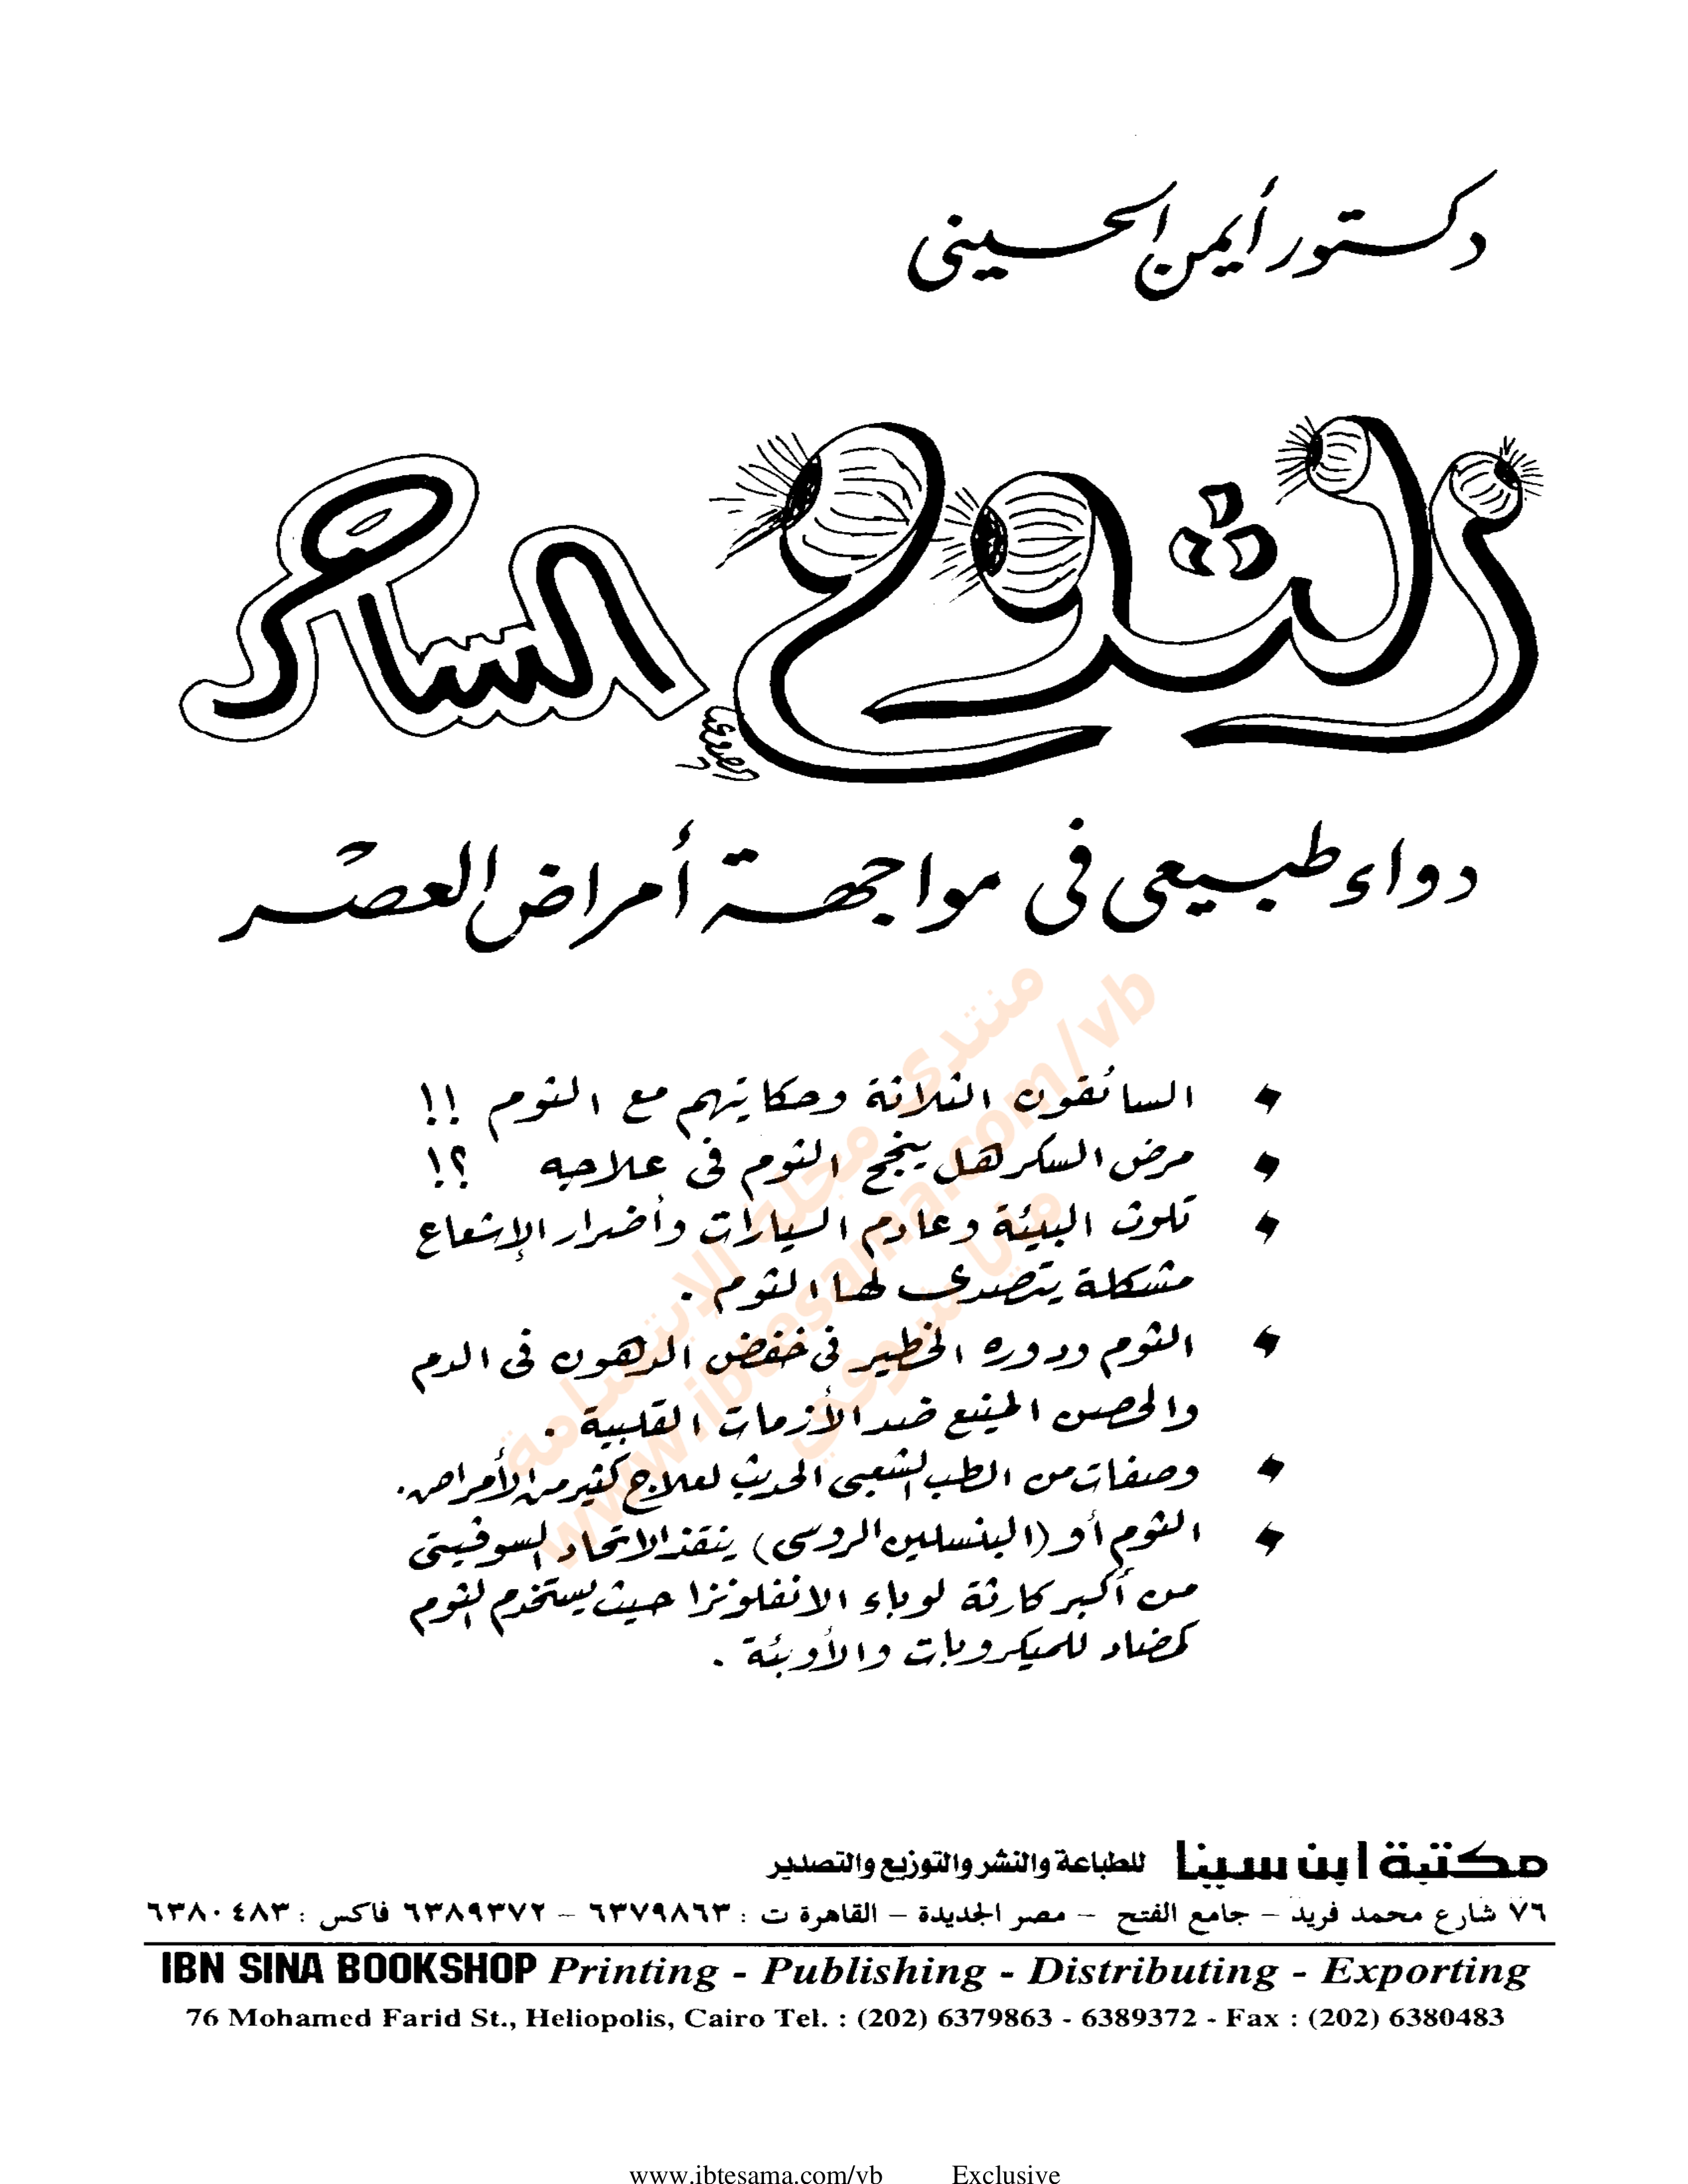 دكتور أيمن الحسينى
الثوم الساحر
دواء طبيعى فى مواجهة أمراض العصر
السائقون الثلاثة وحكايتهم مع الثوم !!
مرض السكر هل ينجح الثوم فى علاجه ؟!
تلوث البيئة وعادم السيارات وأضرار الإشعاع
مشكلة يتصدى لها الثوم .
الثوم ودوره الخطير فى خفض الدهون فى الدم
والحصن المنيع ضد الأزمات القلبية .
وصفات من الطب الشعبى الحديث لعلاج كثير من الأمراض .
الثوم أو (البنسلين الروسى) ينقذ الاتحاد السوفيتى
من أكبر كارثة لوباء الانفلونزا حيث يستخدم الثوم
كمضاد للميكروبات والأوبئة .
منتدى مجلة الإبتسامة
www.ibtesama.com/vb
مايا شوقي
مكتبة ابن سينا للطباعة والنشر والتوزيع والتصدير
٧٦ شارع محمد فريد – جامع الفتح – مصر الجديدة – القاهرة ت : ٦٣٧٩٨٦٣ – ٦٣٨٩٣٧٢ فاكس : ٦٣٨٠٤٨٣
IBN SINA BOOKSHOP Printing - Publishing - Distributing - Exporting
76 Mohamed Farid St., Heliopolis, Cairo Tel. : (202) 6379863 - 6389372 - Fax : (202) 6380483
www.ibtesama.com/vb Exclusive